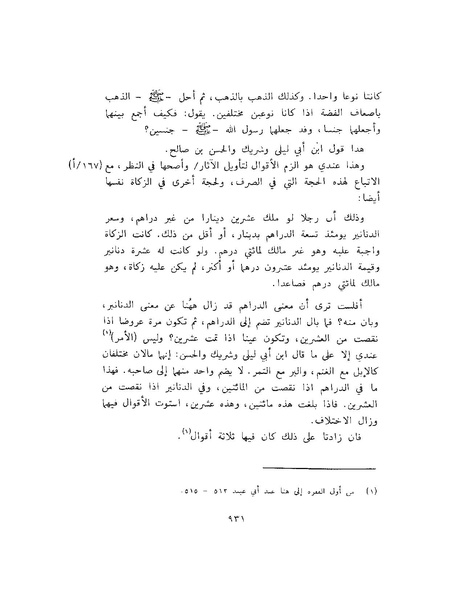 كانتا نوعا واحدا. وكذلك الذهب بالذهب، ثم أحل - ﷺ - الذهب
باضعاف الفضة اذا كانا نوعين مختلفين. يقول: فكيف أجمع بينهما
وأجعلهما جنسا، وقد جعلهما رسول الله - ﷺ - جنسين؟
هدا قول ابن أبي ليلى وشريك والحسن بن صالح.
وهذا عندي هو الزم الأقوال لتأويل الآثار/ وأصحها في النظر، مع (١٦٧/أ)
الاتباع لهذه الحجة التي في الصرف، ولحجة أخرى في الزكاة نفسها
أيضا:
وذلك أن رجلا لو ملك عشرين دينارا من غير دراهم، وسعر
الدنانير يومئذ تسعة الدراهم بدينار، أو أقل من ذلك. كانت الزكاة
واجبة عليه وهو غير مالك لمائتي درهم. ولو كانت له عشرة دنانير
وقيمة الدنانير يومئذ عشرون درهما أو أكثر، لم يكن عليه زكاة، وهو
مالك لمائتي درهم فصاعدا.
أفلست ترى أن معنى الدراهم قد زال ههُنا عن معنى الدنانير،
وبان منه؟ فما بال الدنانير تضم إلى الدراهم، ثم تكون مرة عروضا اذا
نقصت من العشرين، وتكون عينا اذا تمت عشرين؟ وليس (الأمر)(١)
عندي إلا على ما قال ابن أبي ليلى وشريك والحسن: إنهما مالان مختلفان
كالإبل مع الغنم، والبر مع التمر. لا يضم واحد منهما إلى صاحبه. فهذا
ما في الدراهم اذا نقصت من المائتين، وفي الدنانير اذا نقصت من
العشرين. فاذا بلغت هذه مائتين، وهذه عشرين، استوت الأقوال فيها
وزال الاختلاف.
فان زادتا على ذلك كان فيها ثلاثة أقوال(١).
(١) من أول الفقرة إلى هنا عند أبي عبيد ٥١٢ - ٥١٥.
٩٣١